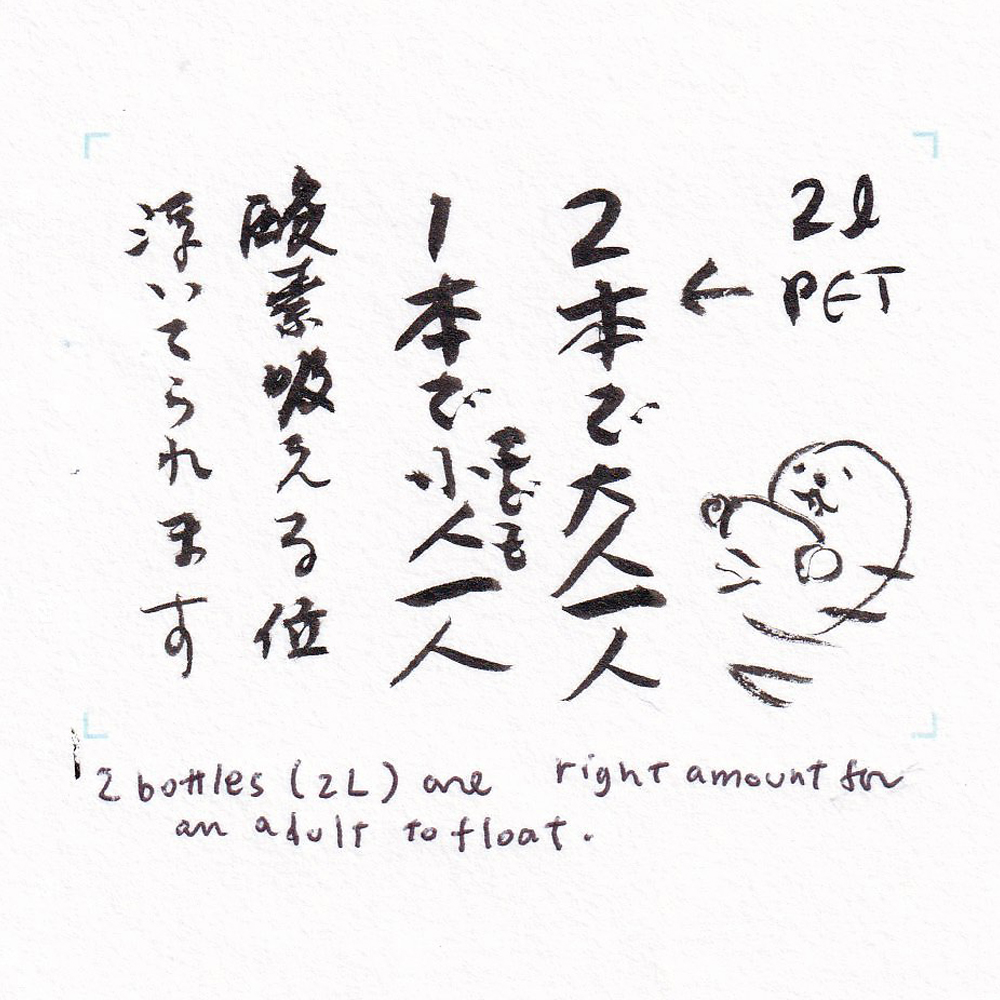 2l
PET
←2本で大人一人
1本で小人一人
こども
酸素吸える位
浮いてられます
2 bottles (2L) are right amount for
an adult to float.